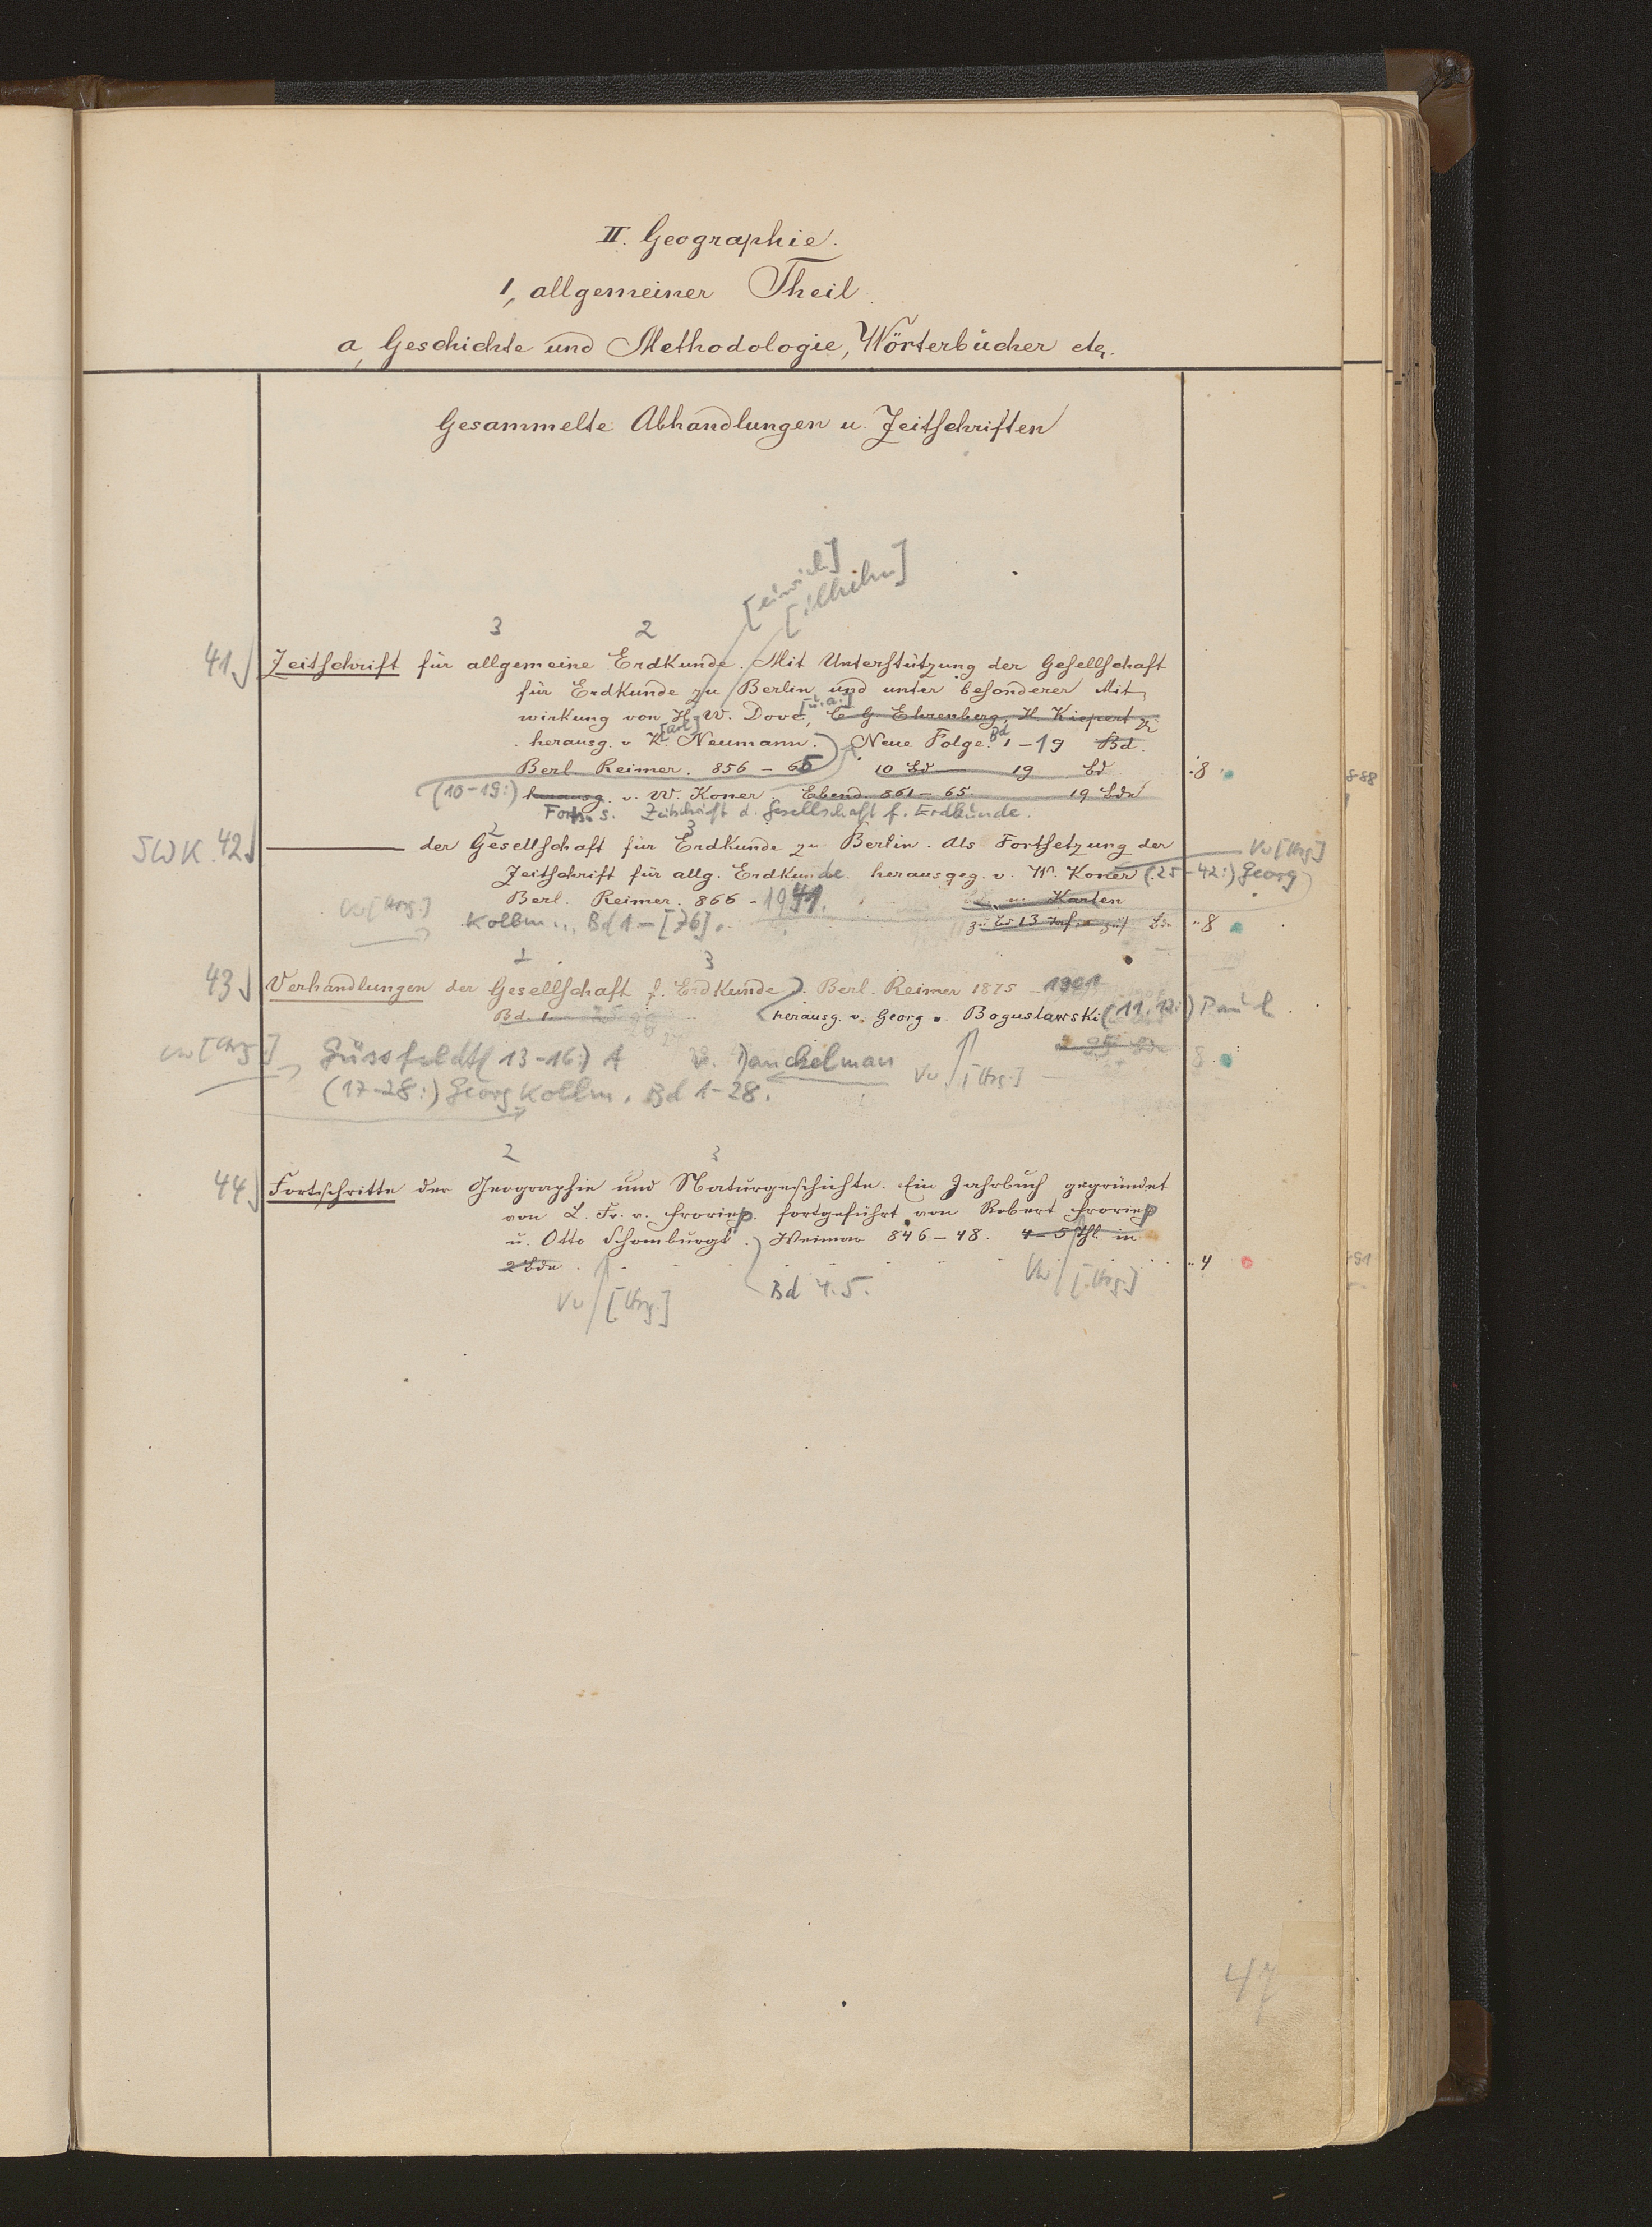 II. Geographie.
1, allgemeiner Theil.
a, Geschichte und Methodologie, Wörterbücher etc.
Gesammelte Abhandlungen u. Zeitschriften
[einrich]
[ilhelm]
3 2
41 Zeitschrift für allgemeine Erdkunde. Mit Unterstützung der Gesellschaft
für Erdkunde zu Berlin und unter besonderer Mit-
wirkung von H. W. Dove, [u. a.] C. G. Ehrenberg, H. Kiepert
herausg. v K[arl] Neumann. Neue Folge. Bd 1-19 Bd.
Berl. Reimer. 856 - 65 10 Bd 19 Bd 8
(10-19:) herausg. v. W. Koner. Ebend. 861-65. 19 Bde
Forts. s. Zeitschrift d. Gesellschaft f. Erdkunde.
2 3
SWK 42 ——— der Gesellschaft für Erdkunde zu Berlin. Als Fortsetzung der
Vw [Hrsg.]
Zeitschrift für allg. Erdkunde herausgeg. v. W. Koner (25-42:) Georg
Berl. Reimer. 866 - 1941. Karten
Vw [Hrsg.] Kollm.., Bd 1-[76]. 8
3
43 Verhandlungen der Gesellschaft f. Erdkunde). Berl. Reimer 1875 - 1901
Bd. 1 herausg. v. Georg v. Boguslawski (11.12:) Paul
25 Bde 8
Vw [Hrsg.] Güssfeldt( 13-16:) A v. Danckelman Vw [Hrsg.]
(17-28:) Georg Kollm. Bd 1-28.
2 3
44 Fortschritte der Geographie und Naturgeschichte. Ein Jahrbuch gegründet
von L. Fr. v. Froriep. fortgeführt von Robert Froriep
u. Otto Schomburgk. Weimar 846-48. 4-5 Thl. in
2 Bde. 4
Vw [Hrsg.] Bd 4.5. Vw [Hrsg.]
47